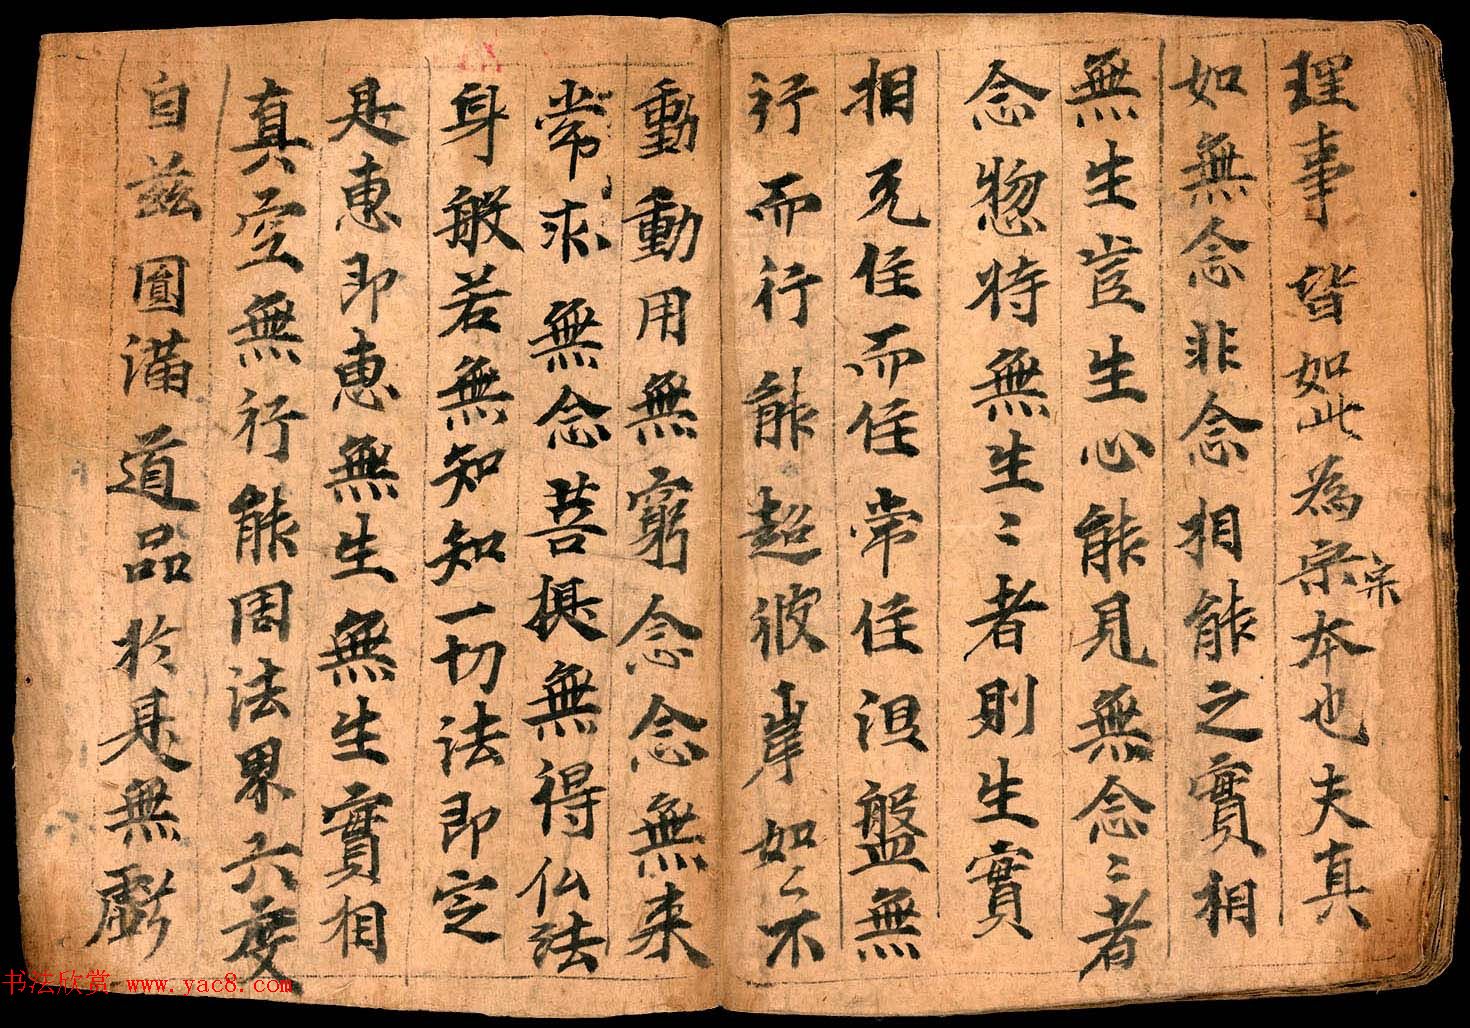 理事皆如此為宗本也夫真
宗
如無念非念相能之實相
無生豈生心能見無念〻者
念惣持無生〻者則生實
相无住而住常住涅盤無
行而行能超彼岸如〻不
動動用無窮念念無来
常求無念菩提無得仏法
身般若無知知一切法即定
是惠即惠無生無生實相
真空無行能周法界六度
自茲圓滿道品於是無虧
书法欣赏 www.yac8.com